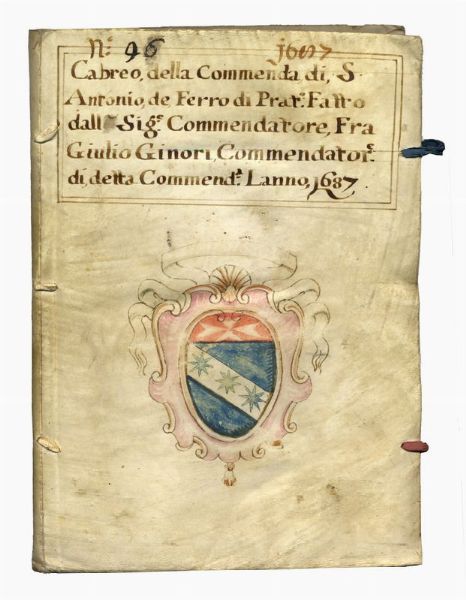 N.º 96 1687
Cabreo, della Commenda di, S.
Antonio, de Ferro di Prat.º Fatto
dall Sig.ʳ Commendatore, Fra
Giulio Ginori, Commendator.ᵉ
di, detta Commend.ᵃ Lanno, 1687